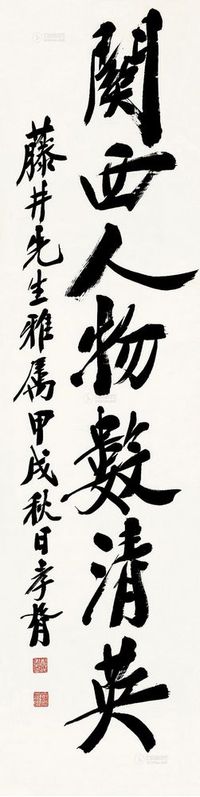 關西人物數清英
藤井先生雅属甲戌秋日孝胥